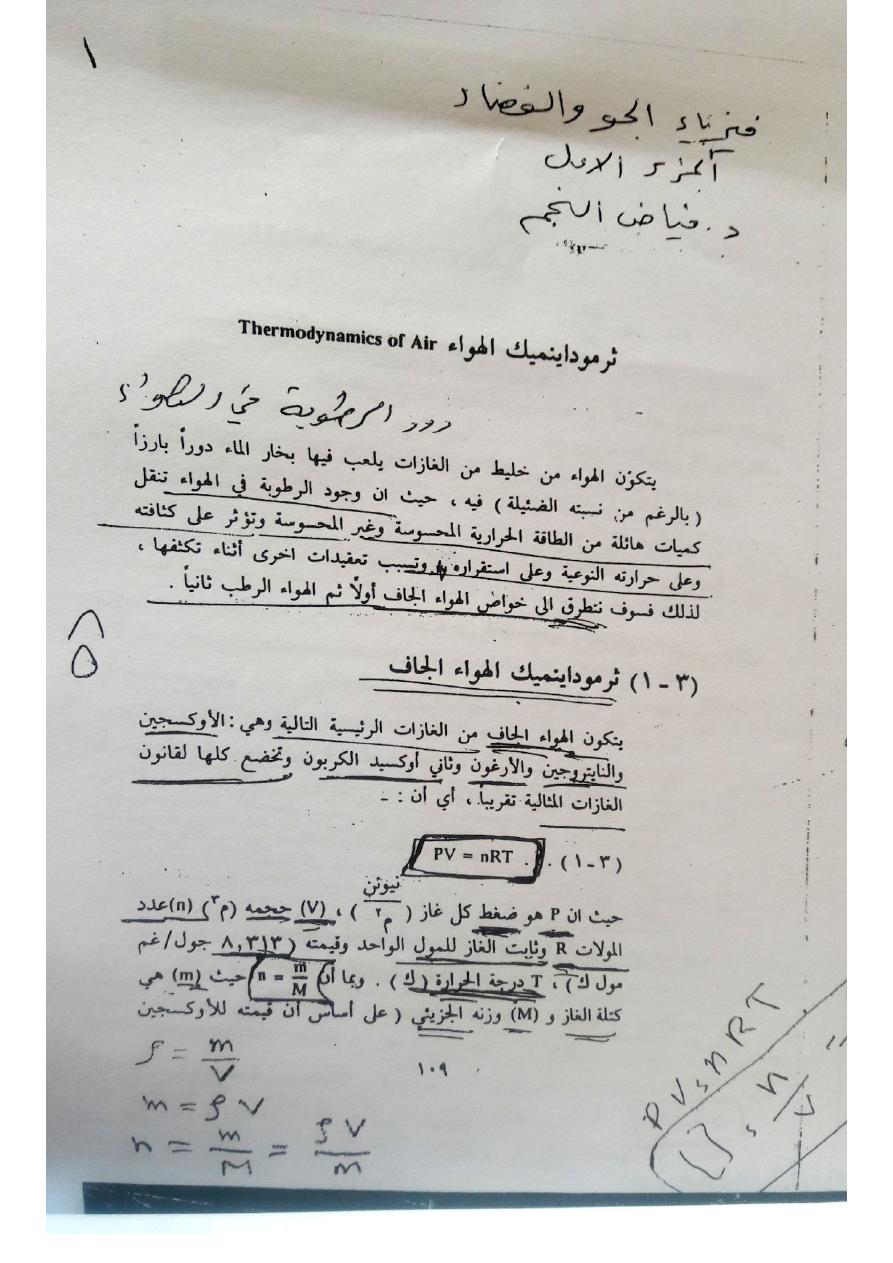 ١
فيزياء الجو والفضاء
الجزء الاول
د. فياض النجم
ثرموداينميك الهواء Thermodynamics of Air
دور الرطوبة في الهواء
يتكوّن الهواء من خليط من الغازات يلعب فيها بخار الماء دوراً بارزاً
( بالرغم من نسبته الضئيلة ) فيه ، حيث ان وجود الرطوبة في الهواء تنقل
كميات هائلة من الطاقة الحرارية المحسوسة وغير المحسوسة وتؤثر على كثافته
وعلى حرارته النوعية وعلى استقراره وتسبب تعقيدات اخرى أثناء تكثفها ،
لذلك فسوف نتطرق الى خواص الهواء الجاف أولاً ثم الهواء الرطب ثانياً .
(٣ - ١) ثرموداينميك الهواء الجاف
يتكون الهواء الجاف من الغازات الرئيسية التالية وهي : الأوكسجين
والنايتروجين والأرغون وثاني أوكسيد الكربون وتخضع كلها لقانون
الغازات المثالية تقريباً ، أي أن : -
PV = nRT . . (٣-١)
حيث ان P هو ضغط كل غاز ( نيوتن / م٢ ) ، (V) حجمه (م٣) (n) عدد
المولات R وثابت الغاز للمول الواحد وقيمته ( ٨,٣١٣ جول/غم
مول ك ) ، T درجة الحرارة ( ك ) . وبما أن n = m/M حيث (m) هي
كتلة الغاز و (M) وزنه الجزيئي ( على أساس أن قيمته للأوكسجين
١٠٩
ρ = m/V
m = ρ V
n = m/M = ρV/m
PV = nRT
n/V